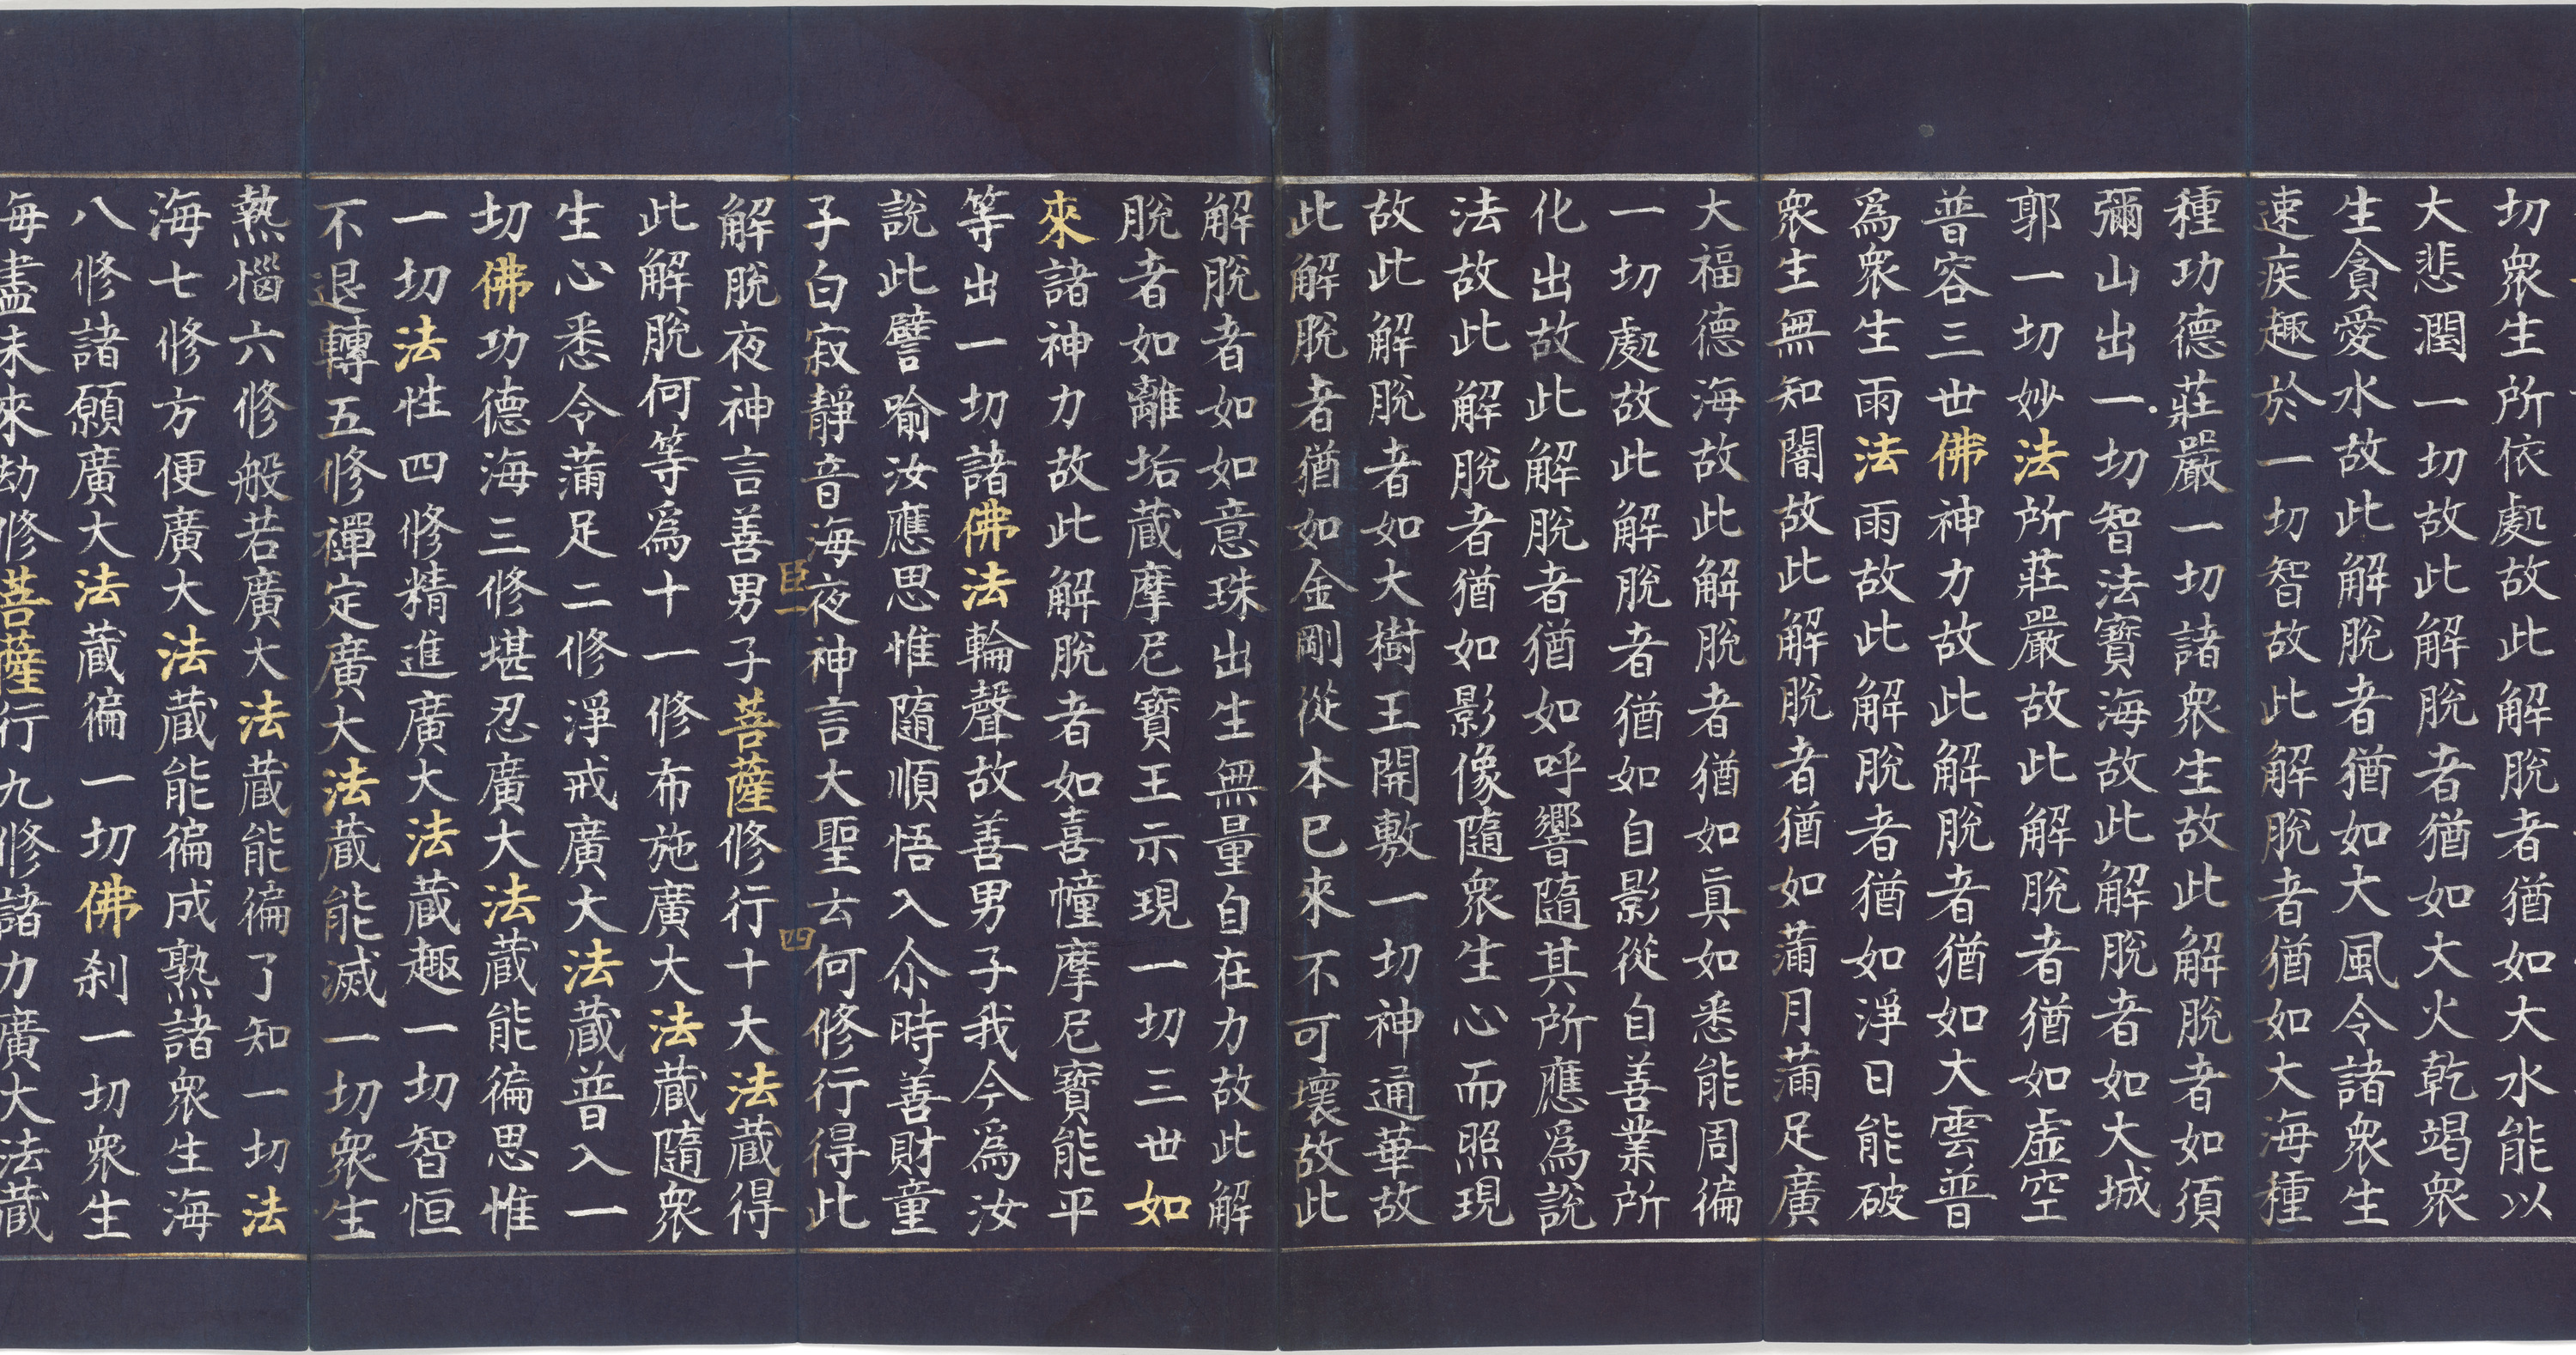 切衆生所依處故此解脫者猶如大水能以
大悲潤一切故此解脫者猶如大火乾竭衆
生貪愛水故此解脫者猶如大風令諸衆生
速疾趣於一切智故此解脫者猶如大海種
種功德莊嚴一切諸衆生故此解脫者如須
彌山出一切智法寶海故此解脫者如大城
郭一切妙法所莊嚴故此解脫者猶如虛空
普容三世佛神力故此解脫者猶如大雲普
爲衆生雨法雨故此解脫者猶如淨日能破
衆生無知闇故此解脫者猶如蒲月蒲足廣
大福德海故此解脫者猶如眞如悉能周徧
一切處故此解脫者猶如自影從自善業所
化出故此解脫者猶如呼響隨其所應爲說
法故此解脫者猶如影像隨衆生心而照現
故此解脫者如大樹王開敷一切神通華故
此解脫者猶如金剛從本已來不可壞故此
解脫者如如意珠出生無量自在力故此解
脫者如離垢藏摩尼寶王示現一切三世如
來諸神力故此解脫者如喜幢摩尼寶能平
等出一切諸佛法輪聲故善男子我今爲汝
說此譬喻汝應思惟隨順悟入尒時善財童
子白寂靜音海夜神言大聖云何修行得此
臣一 四
解脫夜神言善男子菩薩修行十大法藏得
此解脫何等爲十一修布施廣大法藏隨衆
生心悉令蒲足二修淨戒廣大法藏普入一
切佛功德海三修堪忍廣大法藏能徧思惟
一切法性四修精進廣大法藏趣一切智恒
不退轉五修禪定廣大法藏能滅一切衆生
熱惱六修般若廣大法藏能徧了知一切法
海七修方便廣大法藏能徧成熟諸衆生海
八修諸願廣大法藏徧一切佛刹一切衆生
海盡未來劫修菩薩行九修諸力廣大法藏